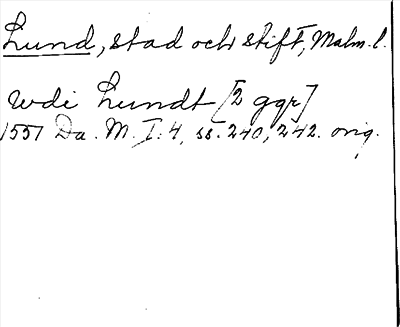 Lund, stad och stift, Malm. l.
wdi Lundt [2 ggr]
1551 Da. M. I: 4, ss. 240, 242. orig.